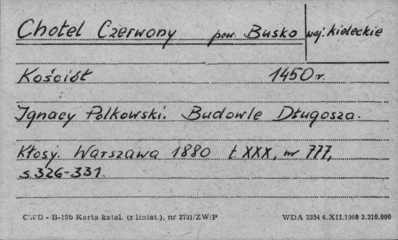 Chotel Czerwony pow. Busko woj. kieleckie
Kościół 1450 r.
Ignacy Polkowski. Budowle Długosza.
Kłosy. Warszawa 1880 t. XXX, nr 777,
s 326-331.
CWD - B-15b Karta katal. (z liniat.), nr 2731/ZW/P WDA 3354 6.XII.1960 3.210.000